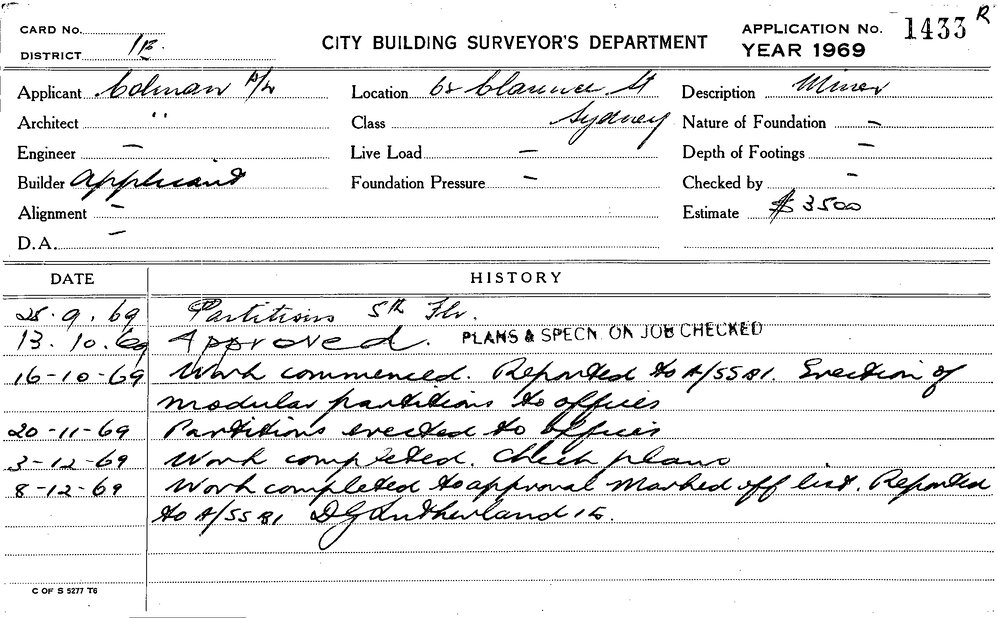 CARD No.
DISTRICT
CITY BUILDING SURVEYOR'S DEPARTMENT
APPLICATION No. 1433 R
YEAR 1969
Applicant Colman P/L
Location Clarence St Sydney
Description Minor
Architect "
Class
Nature of Foundation —
Engineer —
Live Load —
Depth of Footings —
Builder Applicant
Foundation Pressure —
Checked by —
Alignment —
Estimate $ 3500
D.A. —
DATE HISTORY
25.9.69 Partitions 5th Flr.
13.10.69 Approved. PLANS & SPECN. ON JOB CHECKED
16-10-69 Work commenced. Reported to A/SSBI. Erection of
modular partitions to offices
20-11-69 Partitions erected to offices
3-12-69 Work completed. Check plans
8-12-69 Work completed to approval Marked off list. Reported
to A/SSBI DG Sutherland
C OF S 5277 T6